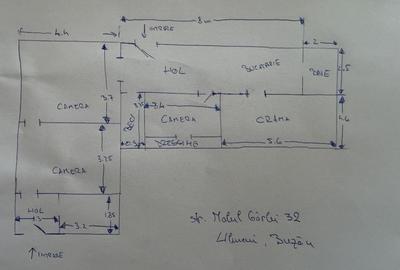 4.4
8m
INTRARE
2
HOL
BUCATARIE
BAIE
2.5
3.7
CAMERA
BECI
3.4
CAMERA
CRAMA
2.6
3.25
0.9
5.6
CAMERA
HOL
1.3
3.2
1.85
INTRARE
str. Malul Gârlei 32
Ulmeni, Buzău